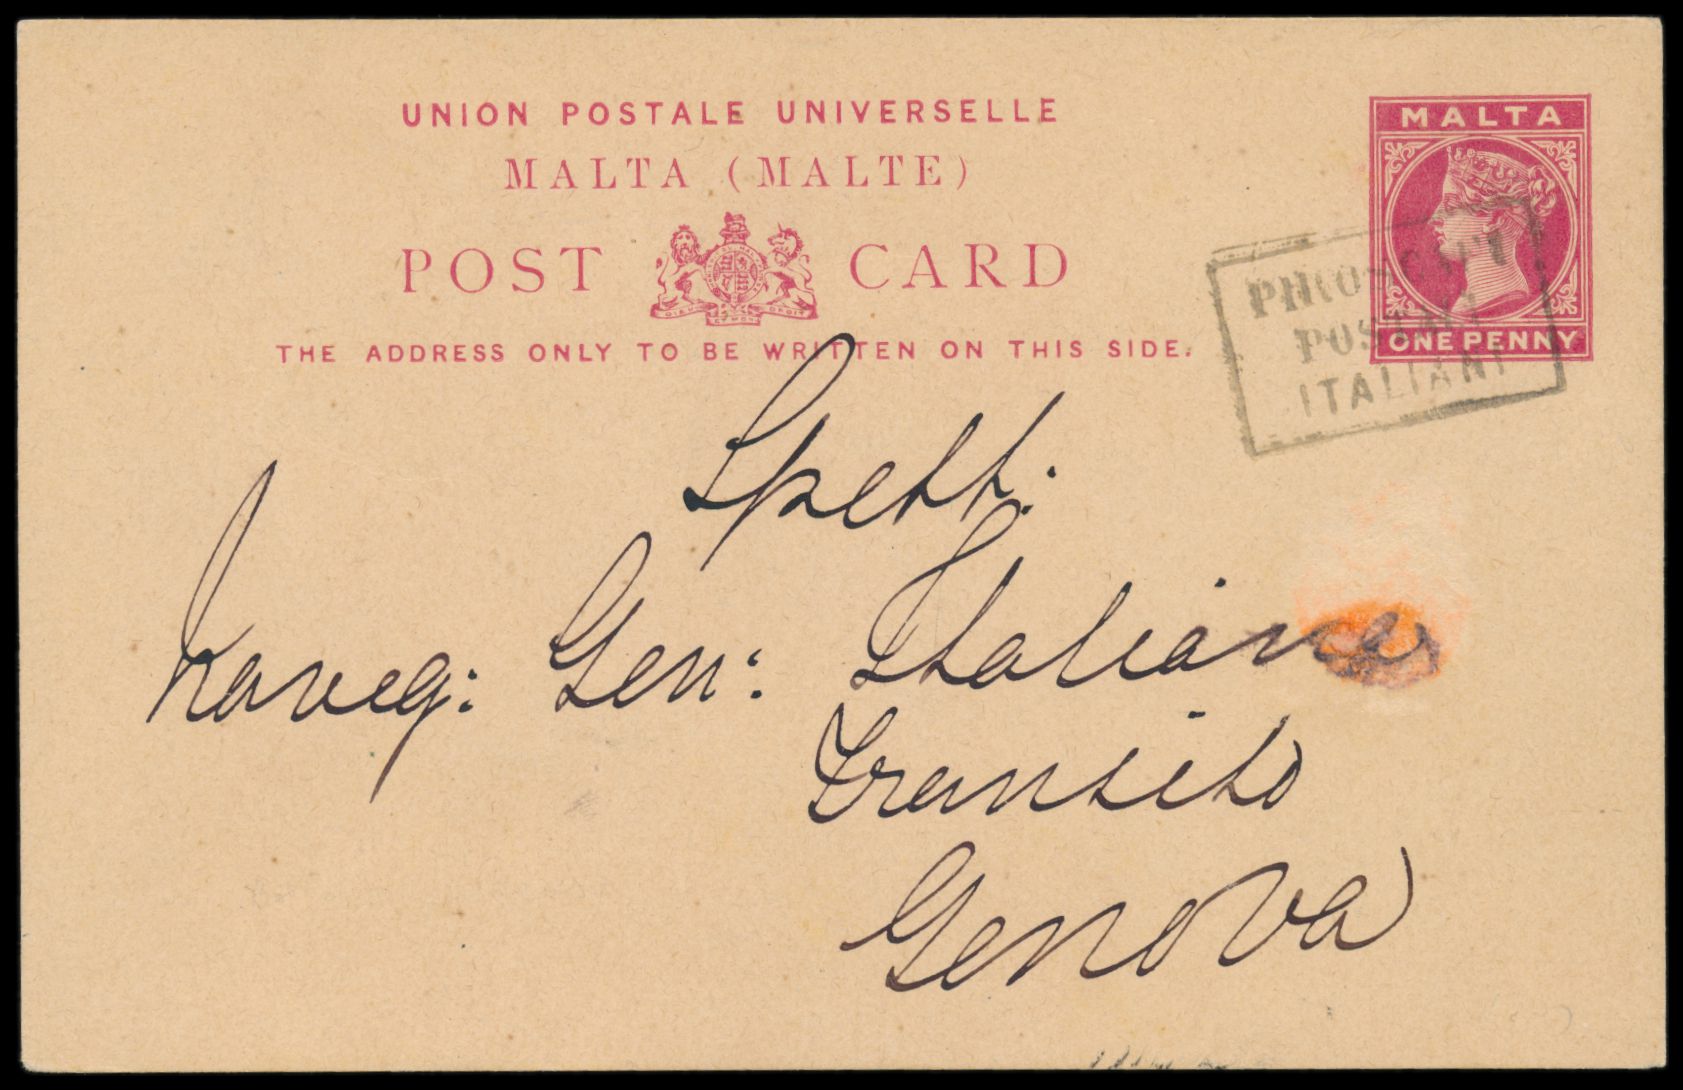 UNION POSTALE UNIVERSELLE
MALTA (MALTE)
POST CARD
THE ADDRESS ONLY TO BE WRITTEN ON THIS SIDE.
MALTA
ONE PENNY
PIROSCAFI
POSTALI
ITALIANI
Spett:
Navig: Gen: Italiana
Transito
Genova